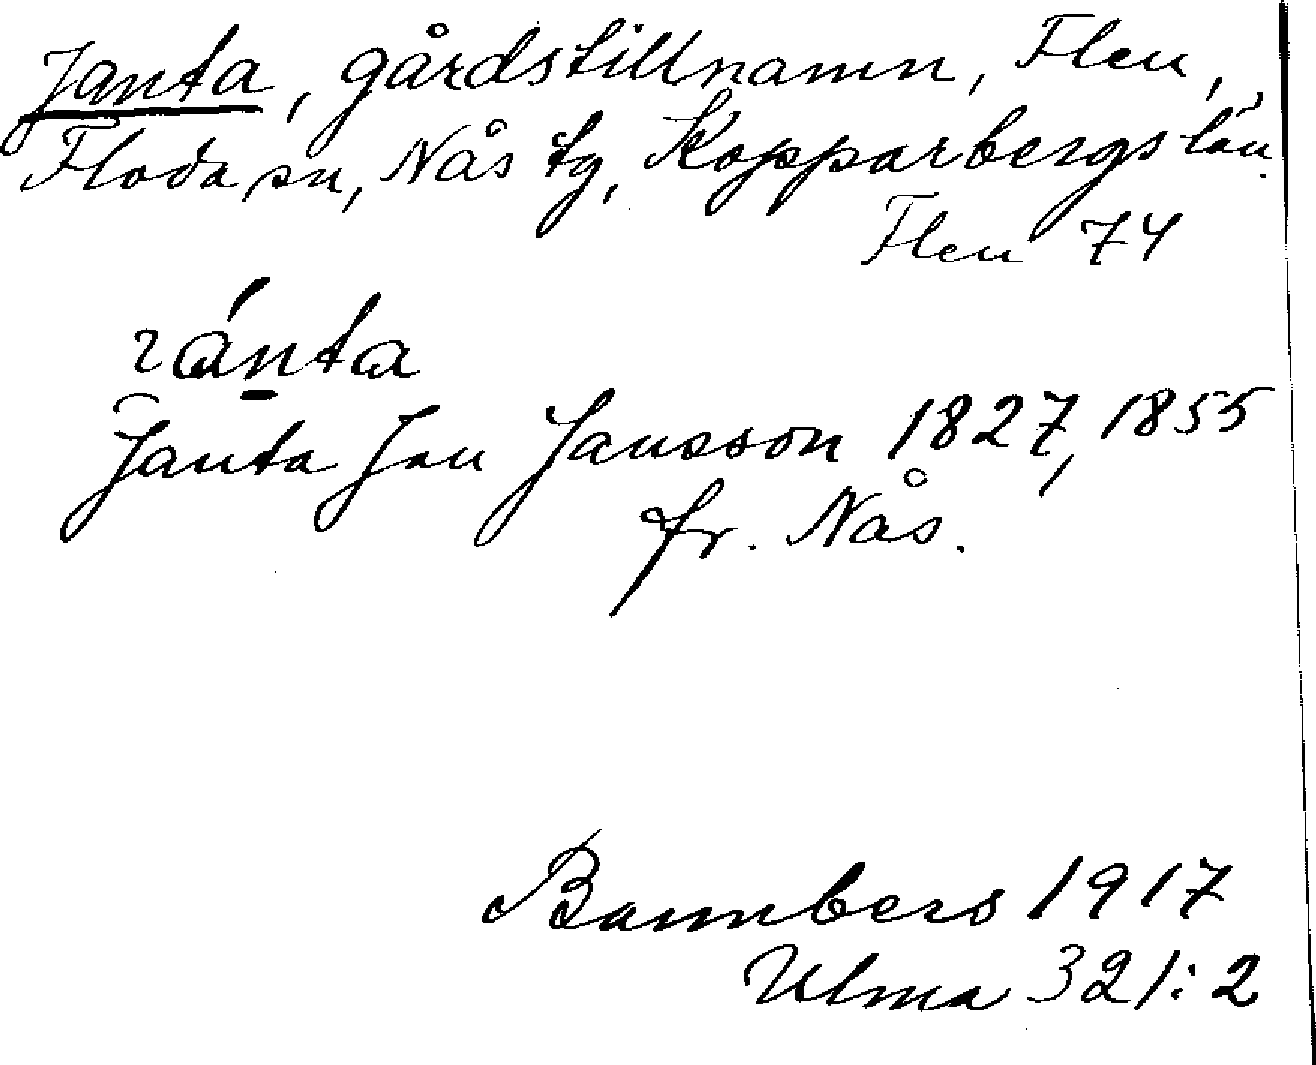 Janta, gårdstillnamn, Flen,
Floda sn, Nås tg, Kopparbergs län.
Flen 74
Janta Jan Jansson 1827, 1855
fr. Nås.
Bannbers 1917
Ulma 321:2